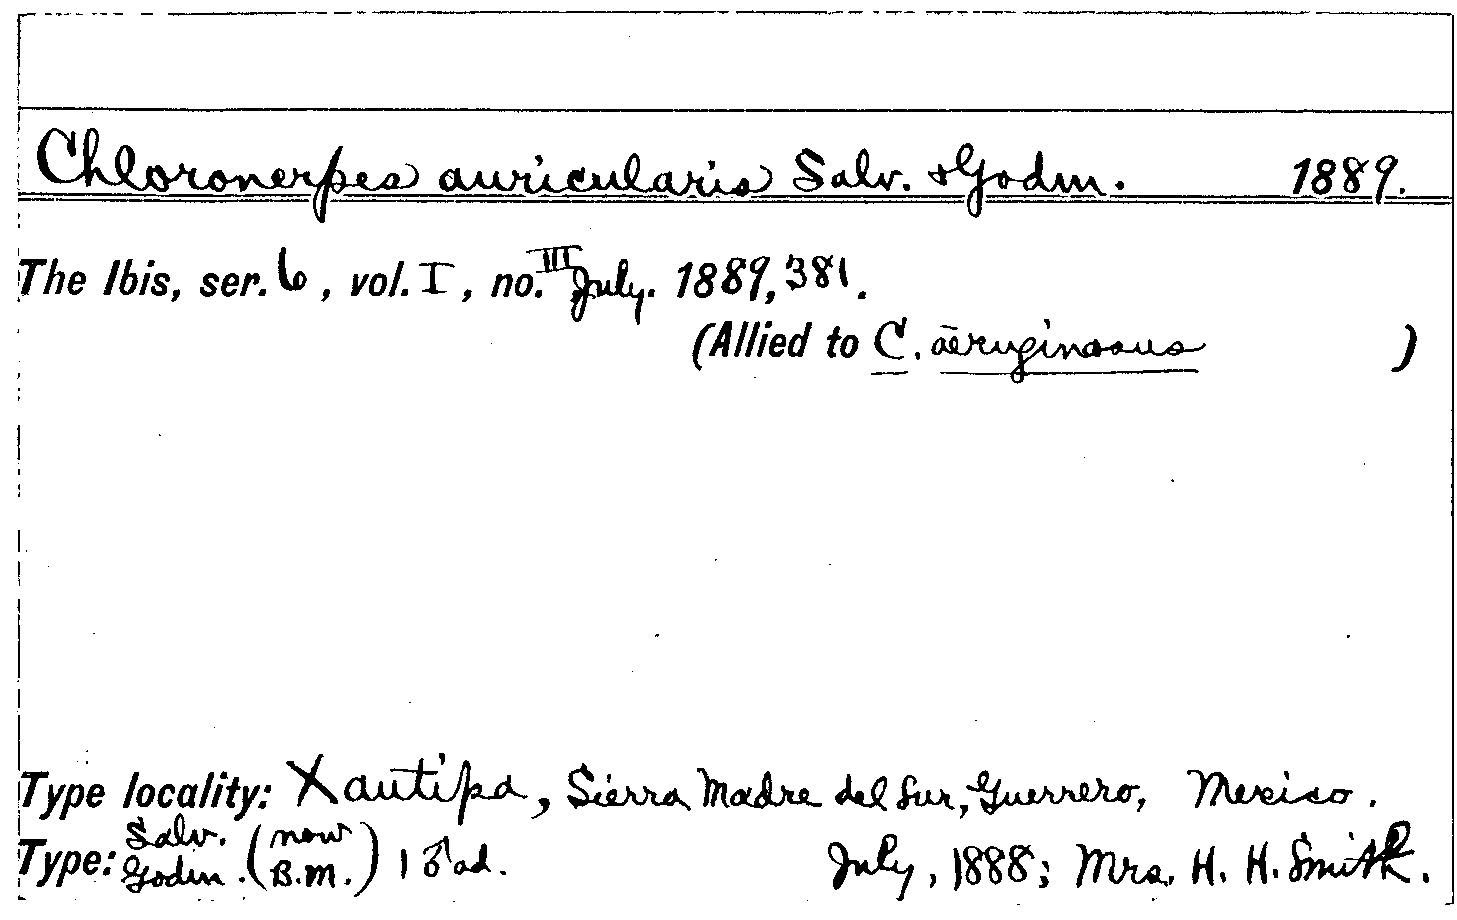 Chloronerpes auricularis Salv. & Godm. 1889.
The Ibis, ser. 6, vol. I, no. III, July. 1889, 381.
(Allied to C. aëruginosus )
Type locality: Xautipa, Sierra Madre del Sur, Guerrero, Mexico.
Type: Salv. Godm. (now B.M.) 1 ♂ ad. July, 1888; Mrs. H. H. Smith.